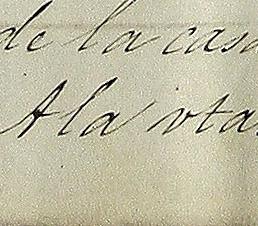 de la casa
A la vta